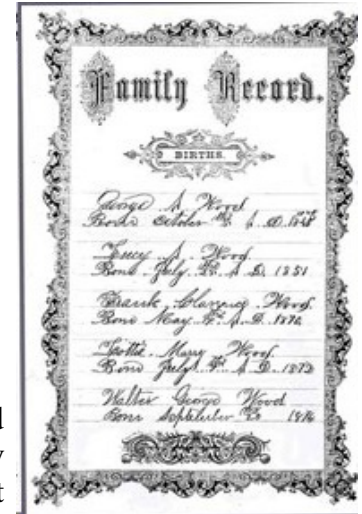 Family Record.
BIRTHS.
George A. Wood
Born October A. D.
Lucy A. Wood
Born July A. D. 1851
Frank Clarence Wood
Born May A. D.
Lottie Mary Wood
Born July A. D. 1873
Walter George Wood
Born September 1876